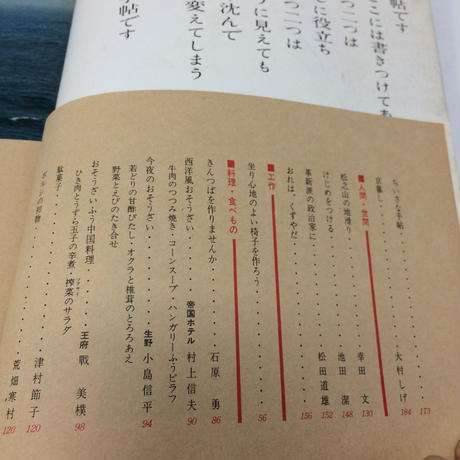 帖です
こには書きつけて
つ二つは
とに役立ち
つ二つは
うに見えても
沈んで
変えてしまう
の帖です
ちいさな手帖・・・・・・173
京暮し・・・・・・大村しげ 184
■人間・世間
松之山の地滑り・・・・・・幸田 文 130
けじめをつける・・・・・・池田 潔 148
革新派の政治家に・・・・・・松田道雄 152
おれは、くずやだ・・・・・・156
■工作
坐り心地のよい椅子を作ろう・・・・・・56
■料理・食べもの
きんつばを作りませんか・・・・・・石原 勇 86
西洋風おそうざい・・・・・・帝国ホテル 村上信夫 90
牛肉のつつみ焼き・コーンスープ・ハンガリーふうピラフ
今夜のおそうざい・・・・・・生野 小島信平 94
若どりの甘酢びたし・オクラと椎茸のとろろあえ
野菜とえびのたき合せ
おそうざいふう中国料理・・・・・・王府 戰 美樸 98
ひき肉とうずら玉子の辛煮・搾菜のサラダ
駄菓子・・・・・・津村節子 120
荒畑寒村 120